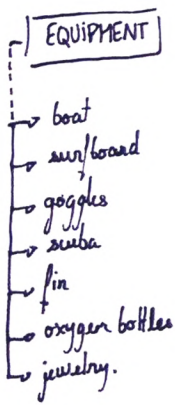 EQUIPMENT
boat
surfboard
goggles
scuba
fin
oxygen bottles
jewelry.